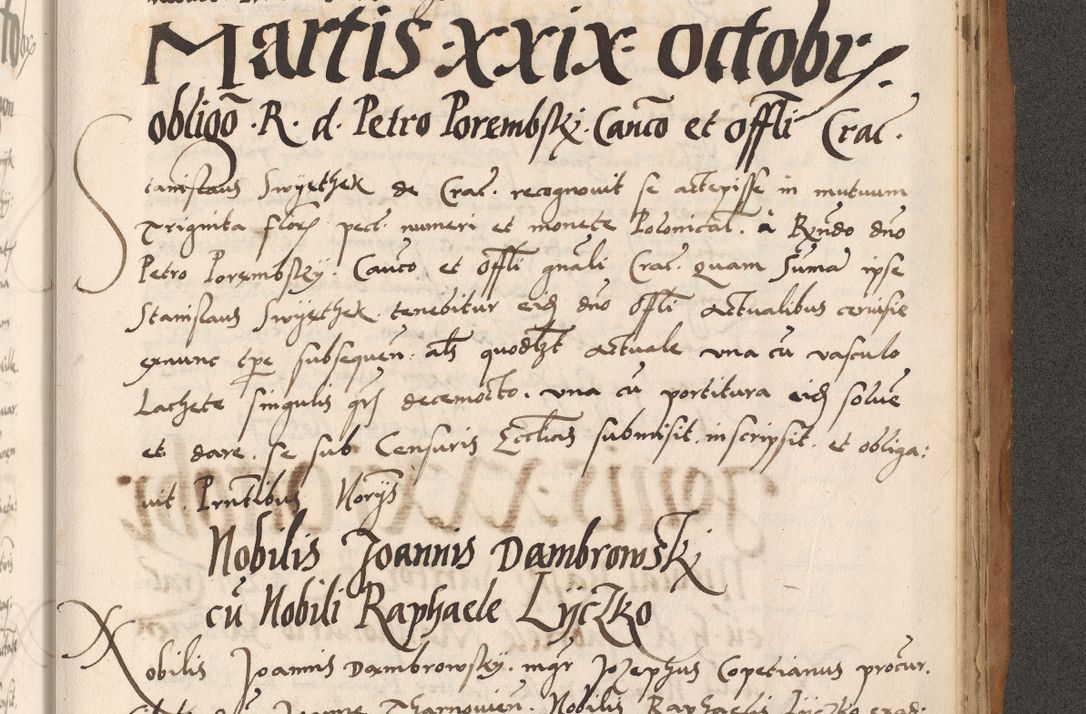 Martis xxix octobr.
obligō R. d. Petro Porembski Canco et offli Crac.
Stanislaus Swyethek de Crac. recognouit se accepisse in mutuum
Triginta floren pect. numeri et monete Polonical. à Rndo dno
Petro Porembsky. Canco et Offli gnali Crac. quam Suma ipse
Stanislaus Swyethek tenebitur eid dno Offli actualibus ceruisie
exnunc tpe subsequen. als quodlzt actuale una cū vasculo
Lachete singulis grs decemocto. una cū portitura eid solue
et dare. se sub Censuris Ecclicis submisit. inscripsit. et obliga:
uit. Prntibus Norys
Nobilis Joannis Dambrowski
cū Nobili Raphaele Lyczko
Nobilis Joannis Dambrowsky. mgr Jozephus Copetianus procur.
Joanne Tharnouien. Nobilis Raphaelis Lyczko